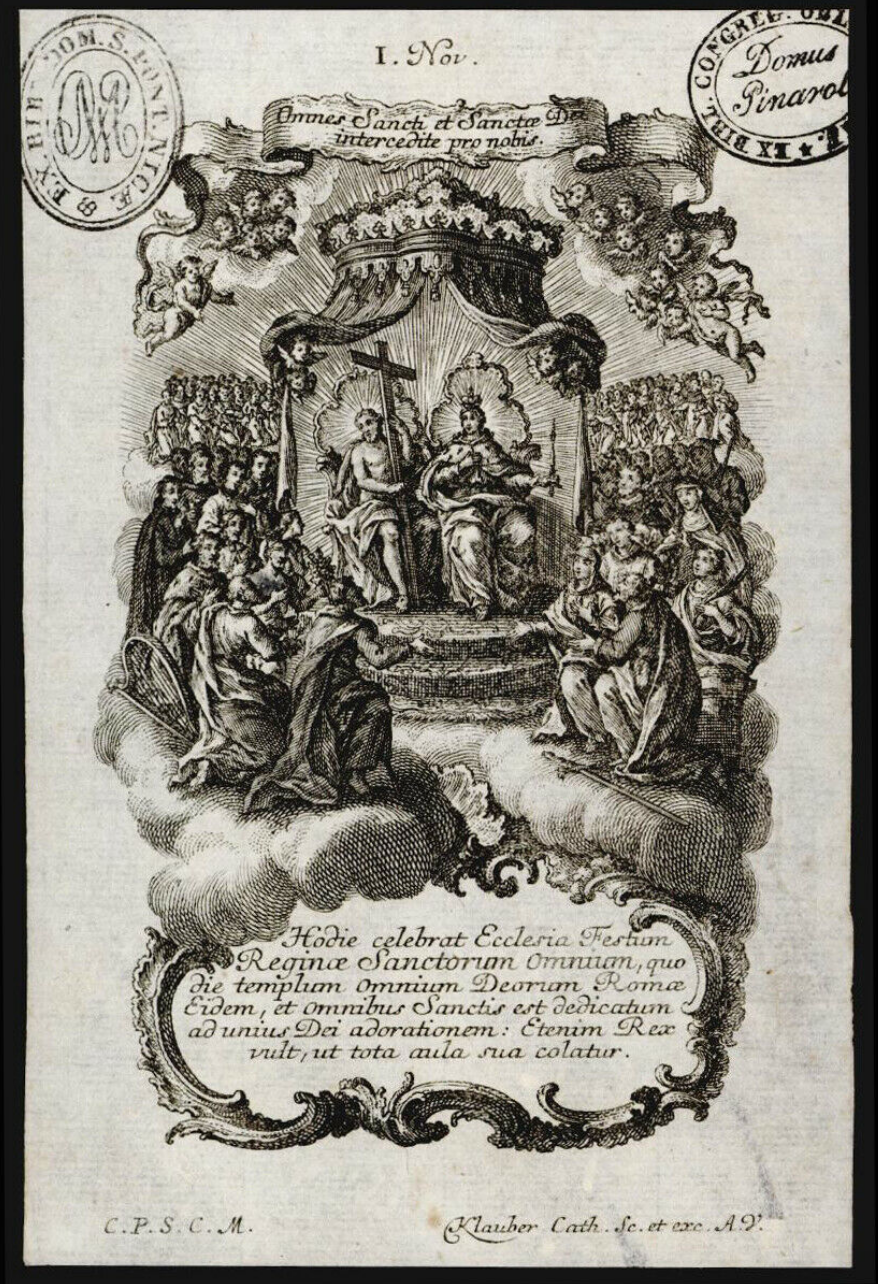 I. Nov.
Omnes Sancti et Sanctæ Dei
intercedite pro nobis.
EX BIB. DOM. S. PONT. NICÆ
CONGREG. OBL.
Domus
Pinarol
EX BIBL.
Hodie celebrat Ecclesia Festum
Reginæ Sanctorum Omnium, quo
die templum Omnium Deorum Romæ
Eidem, et Omnibus Sanctis est dedicatum
ad unius Dei adorationem: Etenim Rex
vult, ut tota aula sua colatur.
C.P.S.C.M.
Klauber Cath. Sc. et exc. A.V.